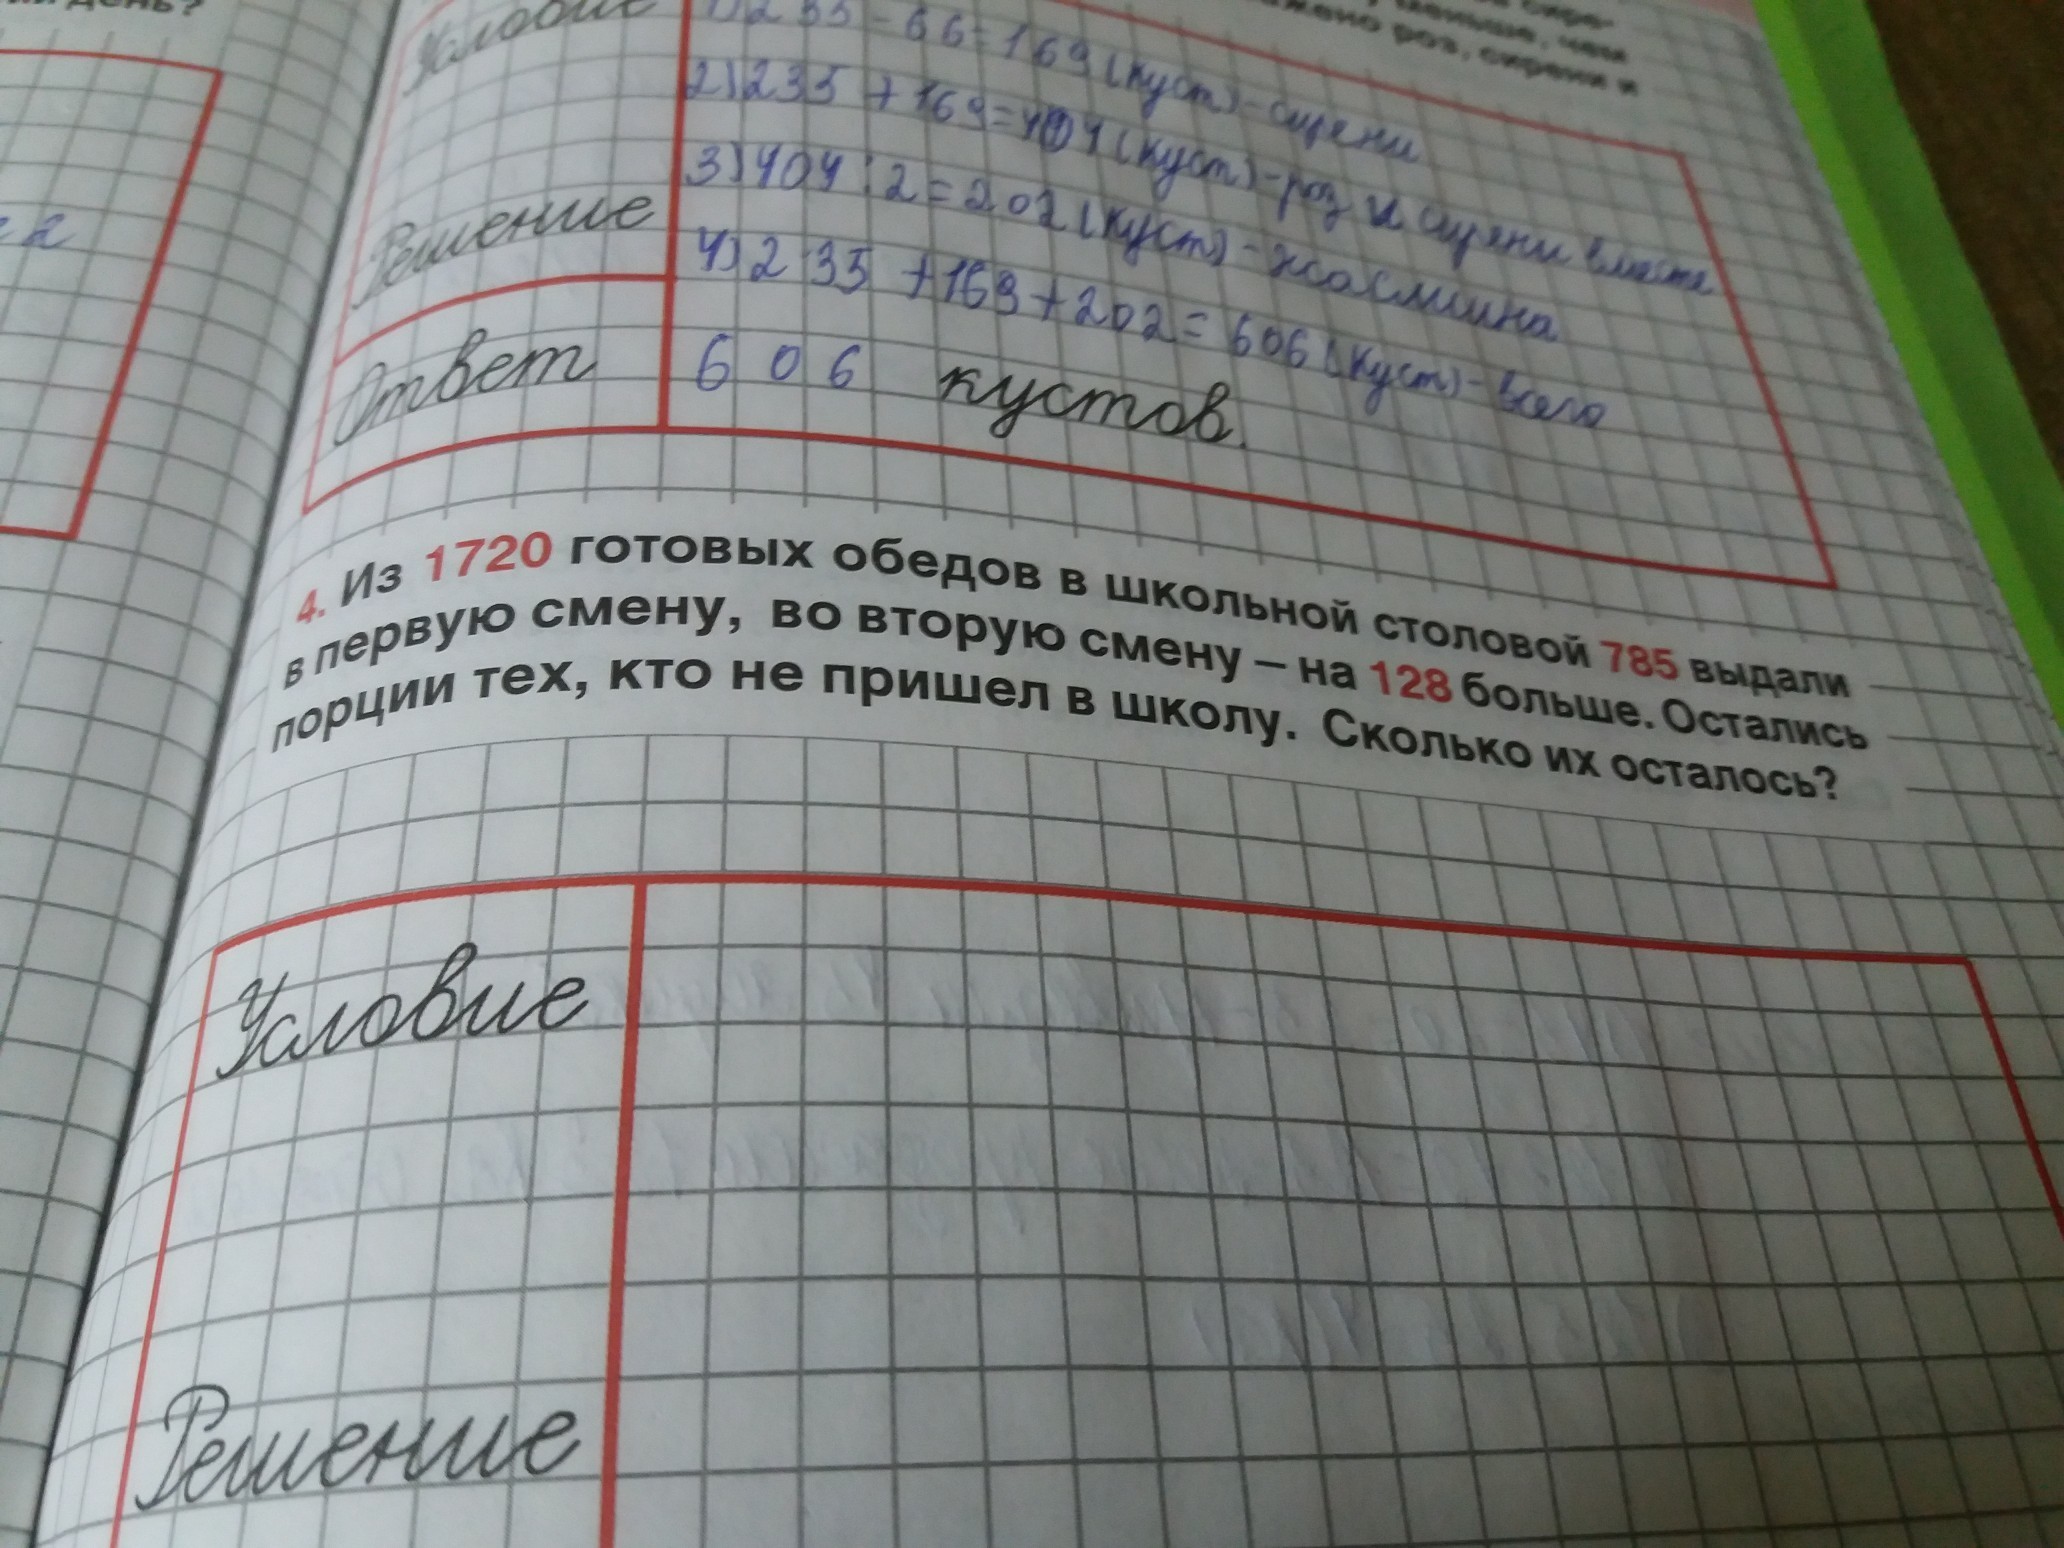 день?
Условие
1) 235 - 66 = 169 (куст) - сирени
2) 235 + 169 = 404 (куст) - роз и сирени вместе
3) 404 : 2 = 202 (куст) - жасмина
Решение
4) 235 + 169 + 202 = 606 (куст) - всего
Ответ 606 кустов.
4. Из 1720 готовых обедов в школьной столовой 785 выдали
в первую смену, во вторую смену – на 128 больше. Остались
порции тех, кто не пришел в школу. Сколько их осталось?
Условие
Решение